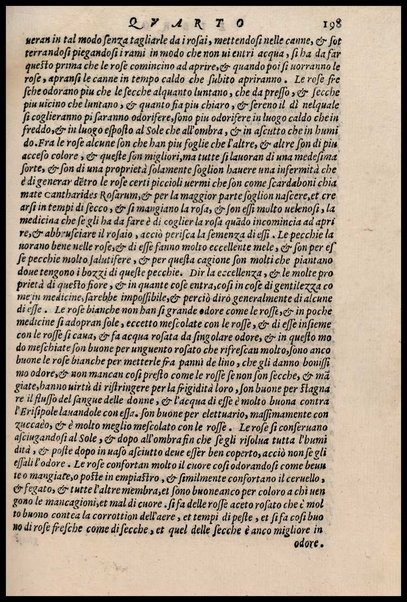 QVARTO 198
ueran in tal modo senza tagliarle da i rosai, mettendosi nelle canne, & sot
terrandosi piegandosi i rami in modo che non ui entri acqua, si ha da far
questo prima che le rose comincino ad aprire, & quando poi si uorranno le
rose, apransi le canne in tempo caldo che subito apriranno. Le rose fre
sche odorano piu che le secche alquanto luntano, che da presso, & secche
piu uicino che luntano, & quanto fia piu chiaro, & sereno il dì nelquale
si coglieranno pi saranno odorifere, sono piu odorifere in luogo caldo che in
freddo, & in luogo esposto al Sole che all'ombra, & in asciutto che in humi
do. Fra le rose alcune son che han piu foglie che l'altre, & altre son di piu
acceso colore, & queste son migliori, ma tutte si lauoran di una medesima
sorte, & son di una proprietà solamente soglion hauere una infermità che
è di generar dẽtro le rose certi piccioli uermi che son come scardaboni chia
mate Cantharides Rosarum, & per la maggior parte soglion nascere, et cre
arsi in tempi di secco, & si mangiano la rosa, & son essi molto uelenosi, la
medicina che se gli ha da fare è di coglier la rosa quãdo incomincia ad apri
re, & abbrusciare il rosaio, acciò perisca la semenza di essi. Le pecchie la
uorano bene nelle rose, & di esse fanno molto eccellente mele, & son per es
se pecchie molto salutifere, & per questa cagione son molti che piantano
doue tengono i bozzi di queste pecchie. Dir la eccellenza, & le molte pro
prietà di questo fiore, & in quante cose entra, cosi in cose di gentilezza co
me in medicine, sarebbe impossibile, & perciò dirò generalmente di alcune
di esse. Le rose bianche non han si grande odore come le rosse, & in poche
medicine si adopran sole, eccetto mescolate con le rosse, & di esse insieme
con le rosse si caua, & fa acqua rosata da singolare odore, & in questo mo
do meschiate son buone per unguento rosato che rifrescan molto, sono anco
buone le rose bianche per metterle fra panni de lino, che gli danno bonissi
mo odore, & non mancan cosi presto come le rosse se non son secche, & mã
giate, hanno uirtù di ristringere per la frigidità loro, son buone per stagna
re il flusso del sangue delle donne, & l'acqua di esse è molto buona contra
l'Erisipole lauandole con essa. son buone per elettuario, massimamente con
zuccaro, & è molto meglio mescolato con le rosse. Le rose si conseruano
asciugandosi al Sole, & dopo all'ombra fin che se gli risolua tutta l'humi
dità, & poste dopo in uaso asciutto deue esser ben coperto, acciò non se gli
essali l'odore. Le rose confortan molto il cuore cosi odorandosi come beuu
te o mangiate, o poste in empiastro, & similmente confortano il ceruello,
& fegato, & tutte l'altre membra, et sono buone anco per coloro a chi uen
gono le mancagioni, et mal di cuore. si fa delle rosse aceto rosato che è mol
to buono contra la corrottion dell'aere, et tempi di peste, et si fa cosi buo
no di rose fresche come di secche, et quel delle secche è anco migliore in
odore.